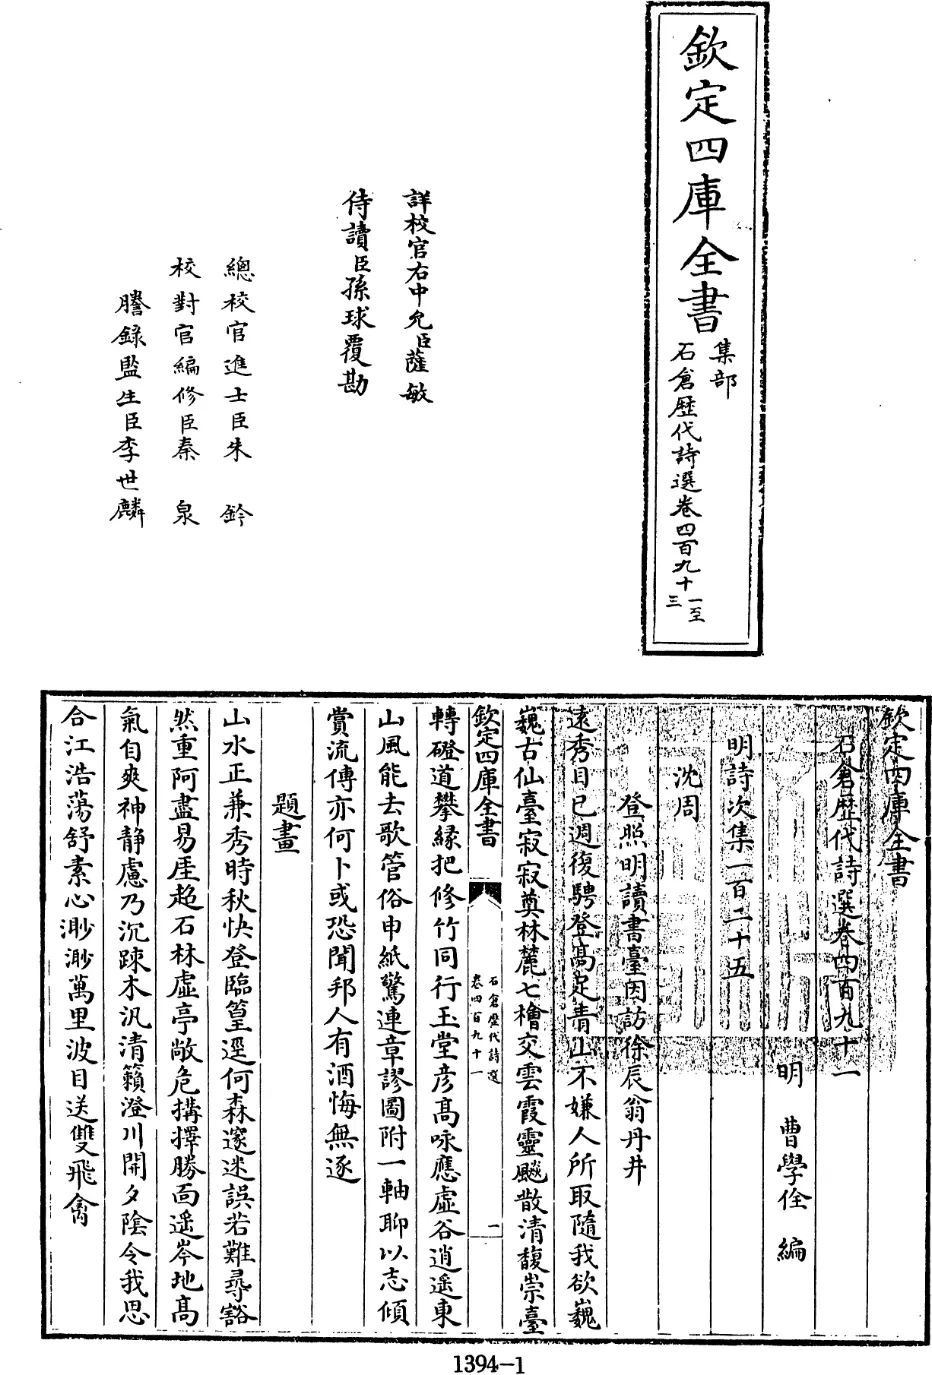 欽定四庫全書
集部
石倉歷代詩選卷四百九十
一至
三
詳校官右中允臣薩敏
侍讀臣孫球覆勘
總校官進士臣朱鈐
校對官編修臣秦泉
謄錄監生臣李世麟
欽定四庫全書
石倉歷代詩選卷四百九十一
明 曹學佺 編
明詩次集一百二十五
沈周
登照明讀書臺因訪徐辰翁丹井
遠秀目已週復騁登高足青山不嫌人所取隨我欲巍
巍古仙臺寂寂奠林麓七檜交雲霞靈飈散清馥崇臺
欽定四庫全書
石倉歷代詩選
卷四百九十一
一
轉磴道攀緣把修竹同行玉堂彥高咏應虛谷逍遙東
山風能去歌管俗申紙驚連章謬圖附一軸聊以志傾
賞流傳亦何卜或恐聞邦人有酒悔無逐
題畫
山水正兼秀時秋快登臨篁逕何森邃迷誤若難尋豁
然重阿盡易厓超石林虛亭敞危搆擇勝面遙岑地高
氣自爽神靜慮乃沉疎木汎清籟澄川開夕陰令我思
合江浩蕩舒素心渺渺萬里波目送雙飛禽
1394-1